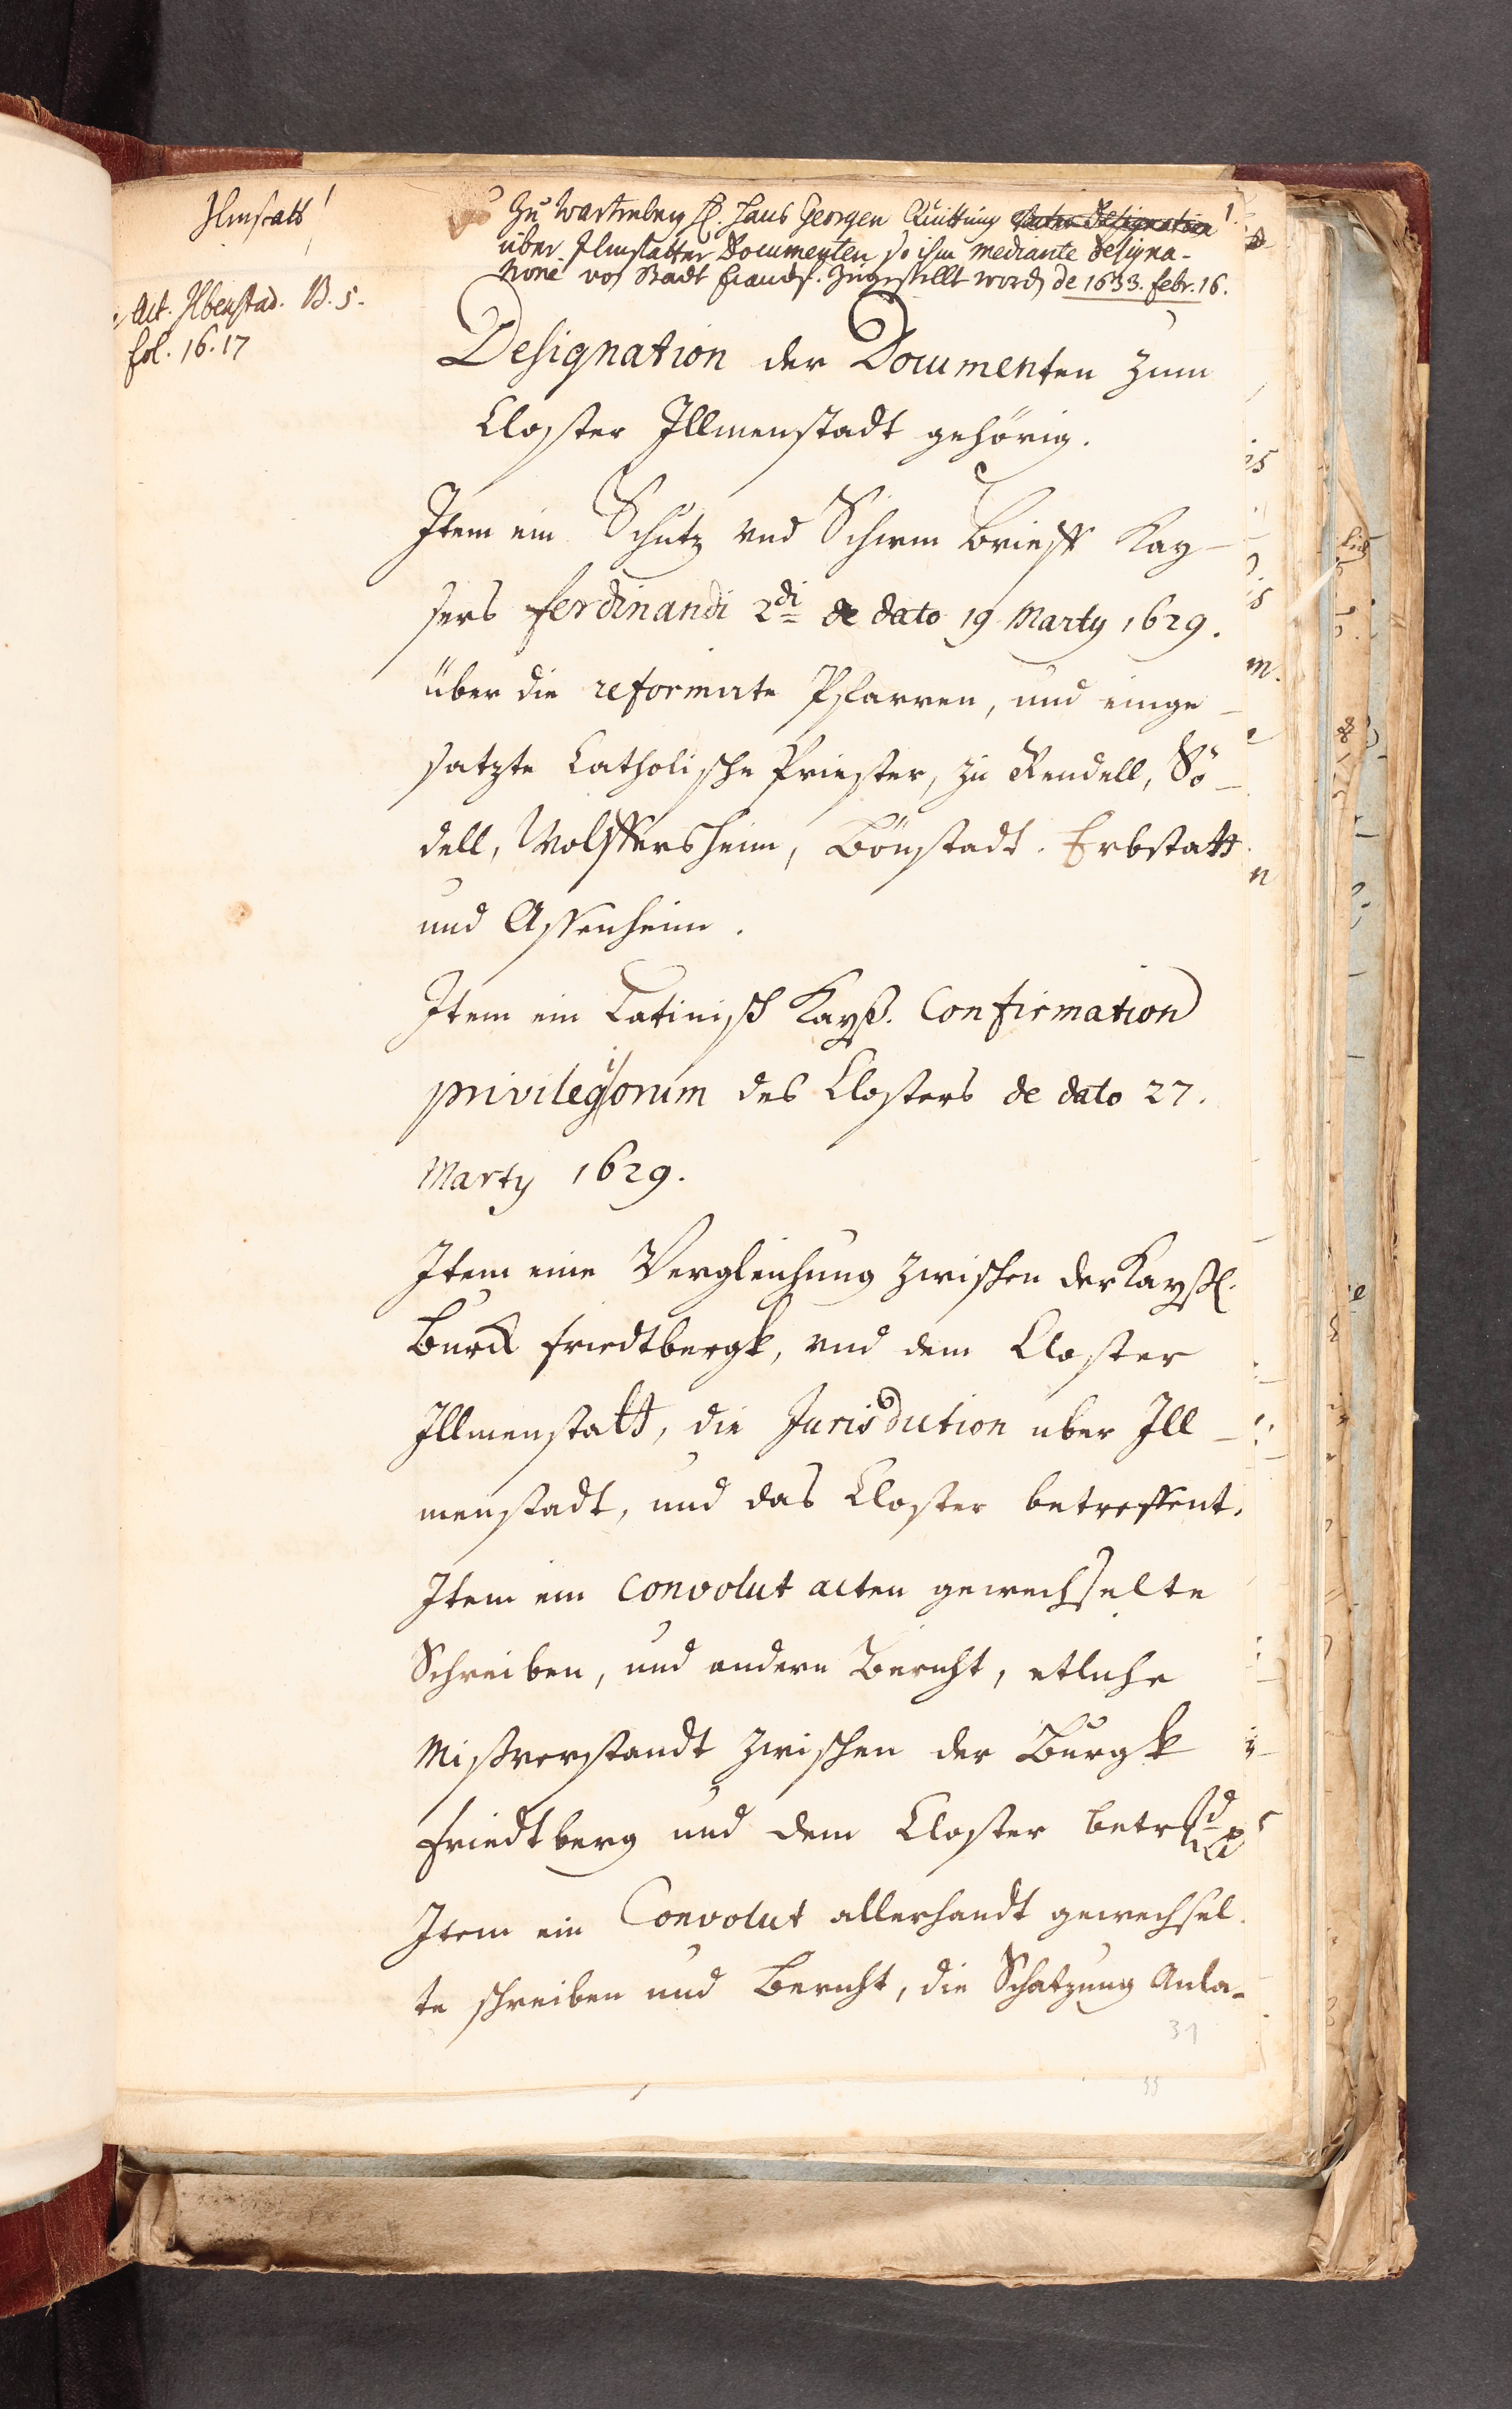 Ilmstatt
Act. Ilbenstad. B. 5.
fol. 16. 17
Zu Wartenberg H. Hans Georgen Quittung
über Ilmstatter Documenten so ihm mediante designa-
tione von Stadt Francf. Zugestellt word de 1633. febr. 16.
Designation der Documenten zum
Closter Illmenstadt gehörig.
Item ein Schutz vnd Schirm Brieff Kay-
sers ferdinandi 2di de dato 19 Marty 1629.
über die reformirte Pfarren, und einge-
satzte Catholische Priester, zu Rendell, Sö-
dell, Wolffersheim, Bönstadt, Erbstatt
und Assenheim.
Item ein Latinisch Kayß. Confirmation
privilegiorum des Closters de dato 27.
Marty 1629.
Item eine Vergleichung zwischen der Kayßl.
Burck friedtbergk, vnd dem Closter
Illmenstatt, die Jurisdiction uber Ill-
menstadt, und das Closter betreffent.
Item ein Convolut acten gewechselte
Schreiben, und andere Bericht, etliche
Mißverstandt zwischen der Burgk
friedtberg und dem Closter betreffd
Item ein Convolut allerhandt gewechsel-
te schreiben und Bericht, die Schatzung Anla-
31